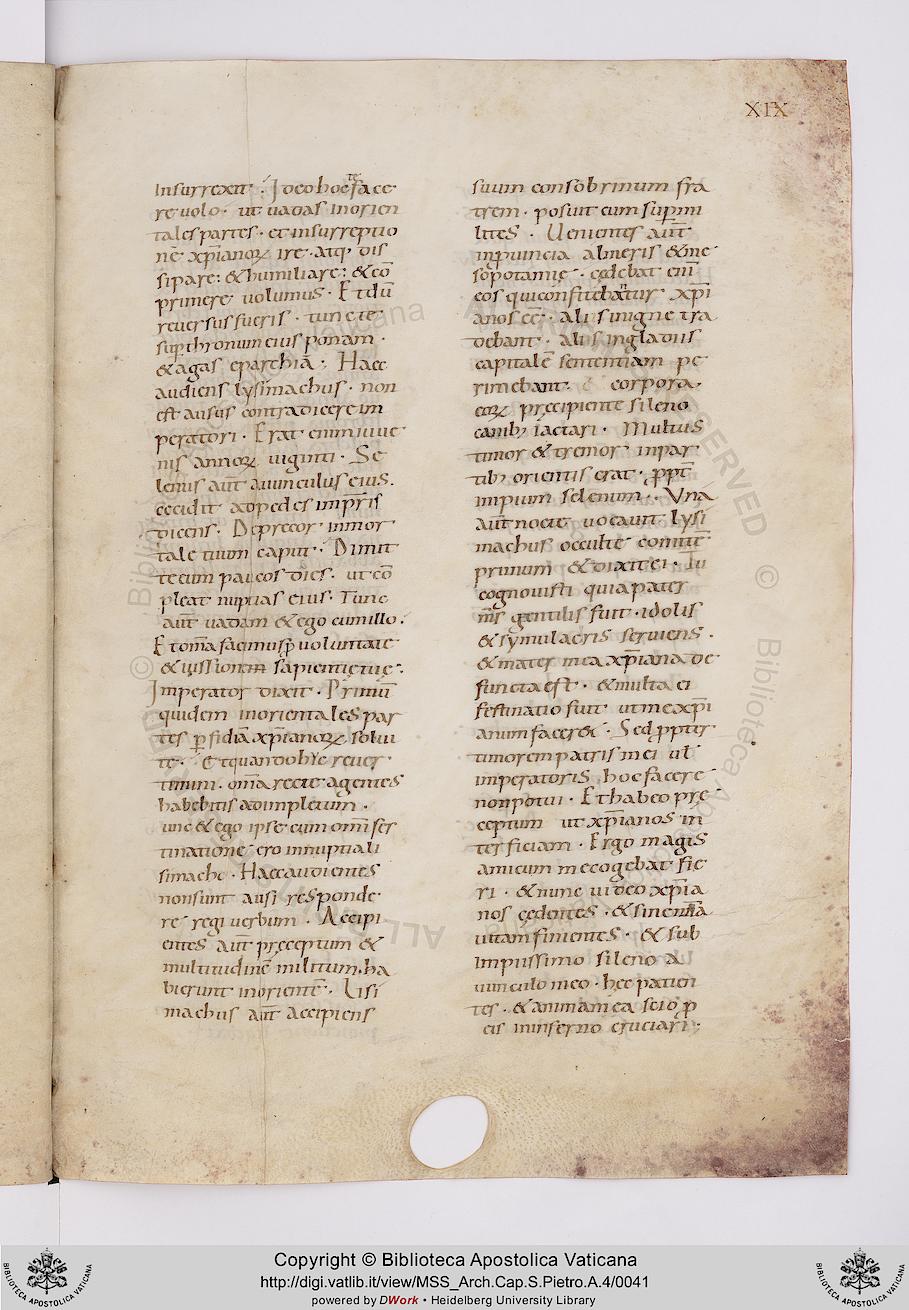 XIX
Insurrexit. Ideo hoc te face
re uolo. ut uadas inorien
tales partes. et insurreptio
nē xp̄ianorꝫ ire. atq; dis
sipare: & humiliare: & cō
primere uolumus. Et dū
reuersus fueris. tunc te
sup thronum eius ponam.
& agas eparchiā. Haec
audiens lysimachus. non
est ausus contradicere im
peratori. Erat enim iuue
nis annorꝫ uiginti. Se
lenus aūt auunculus eius.
cecidit ad pedes imp̄ris
dicens. Deprecor inmor
tale tuum caput. Dimit
te eum paucos dies. ut cō
pleat nuptias eius. Tunc
aūt uadam & ego cum illo.
Et om̄a facimus ꝑ uoluntate
& iussionem sapientię tuę.
Imperator dixit. Primū
quidem inorientales par
tes ꝑfidiā xp̄ianorꝫ solui
te. Et quando hęc reuer
timini. om̄a recte agentes
habebitis adimpletum.
unc & ego ipse cum om̄i fes
tinatione ero innuptiali
simachi. Haec audientes
non sunt ausi responde
re regi uerbum. Accipi
entes aūt pręceptum &
multitudinē militum. ha
bierunt inorientē. Lisi
machus aūt accipiens
suum consobrinum fra
trem. posuit eum sup mi
lites. Uenientes aūt
inprouincia abneris & me
sopotamię. cędebat eni
eos qui confitebantur xp̄i
anos eē. alios in igne tra
debant. alios in gladiis
capitalē sententiam pe
rimebant. & corpora.
eorꝫ pręcipiente sileno
canibꝫ iactari. Multus
timor & tremor inpar
tibꝫ orientis erat. ꝓpt̄
impium selenum. Una
aūt nocte uocauit lysi
machus occulte comitē
primum & dixit ei. Tu
cognouisti quia pater
m̄s gentilis fuit. idolis
& symulacris seruiens.
& mater mea xp̄iana de
functa est. & multa ei
festinatio fuit ut me xp̄i
anum faceret. Sed ꝓpter
timorem patris mei ul̄
imperatoris hoc facere
non potui. Et habeo prę
ceptum ut xp̄ianos in
terficiam. Ergo magis
amicum me cogebat fie
ri. & nunc uideo xp̄ia
nos cędentes. & sine culpa
uitam finientes. & sub
impiissimo sileno a
uunculo meo. hęc patien
tes. & anima mea scio ꝓ
eis in inferno cruciari;
Copyright © Biblioteca Apostolica Vaticana
http://digi.vatlib.it/view/MSS_Arch.Cap.S.Pietro.A.4/0041
powered by DWork • Heidelberg University Library